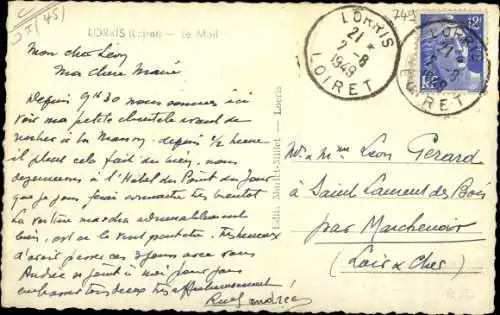 (45)
749
LORRIS (Loiret) — Le Mail
LORRIS
21 *
2-8
1949
LOIRET
LORRIS
21 *
2-8
LOIRET
Mon cher Léon
Ma chère Marie
Depuis 9H30 nous sommes ici
voir ma petite clientèle avant de
rentrer à la Maison. depuis 1/2 heure
il pleut cela fait du bien. nous
déjeunerons à l'Hôtel du Point du Jour
que je vous ferai connaître très bientôt
La voiture marche admirablement
bien, est ce le vent peut être. très heureux
d'avoir passé ces 2 jours avec vous
Andrée se joint à moi pour vous
embrasser tous deux très affectueusement
Edit. Marill-Millet - Lorris
Mr & Mme Léon Gérard
à Saint Laurent des Bois
par Marchenoir
(Loir & Cher)